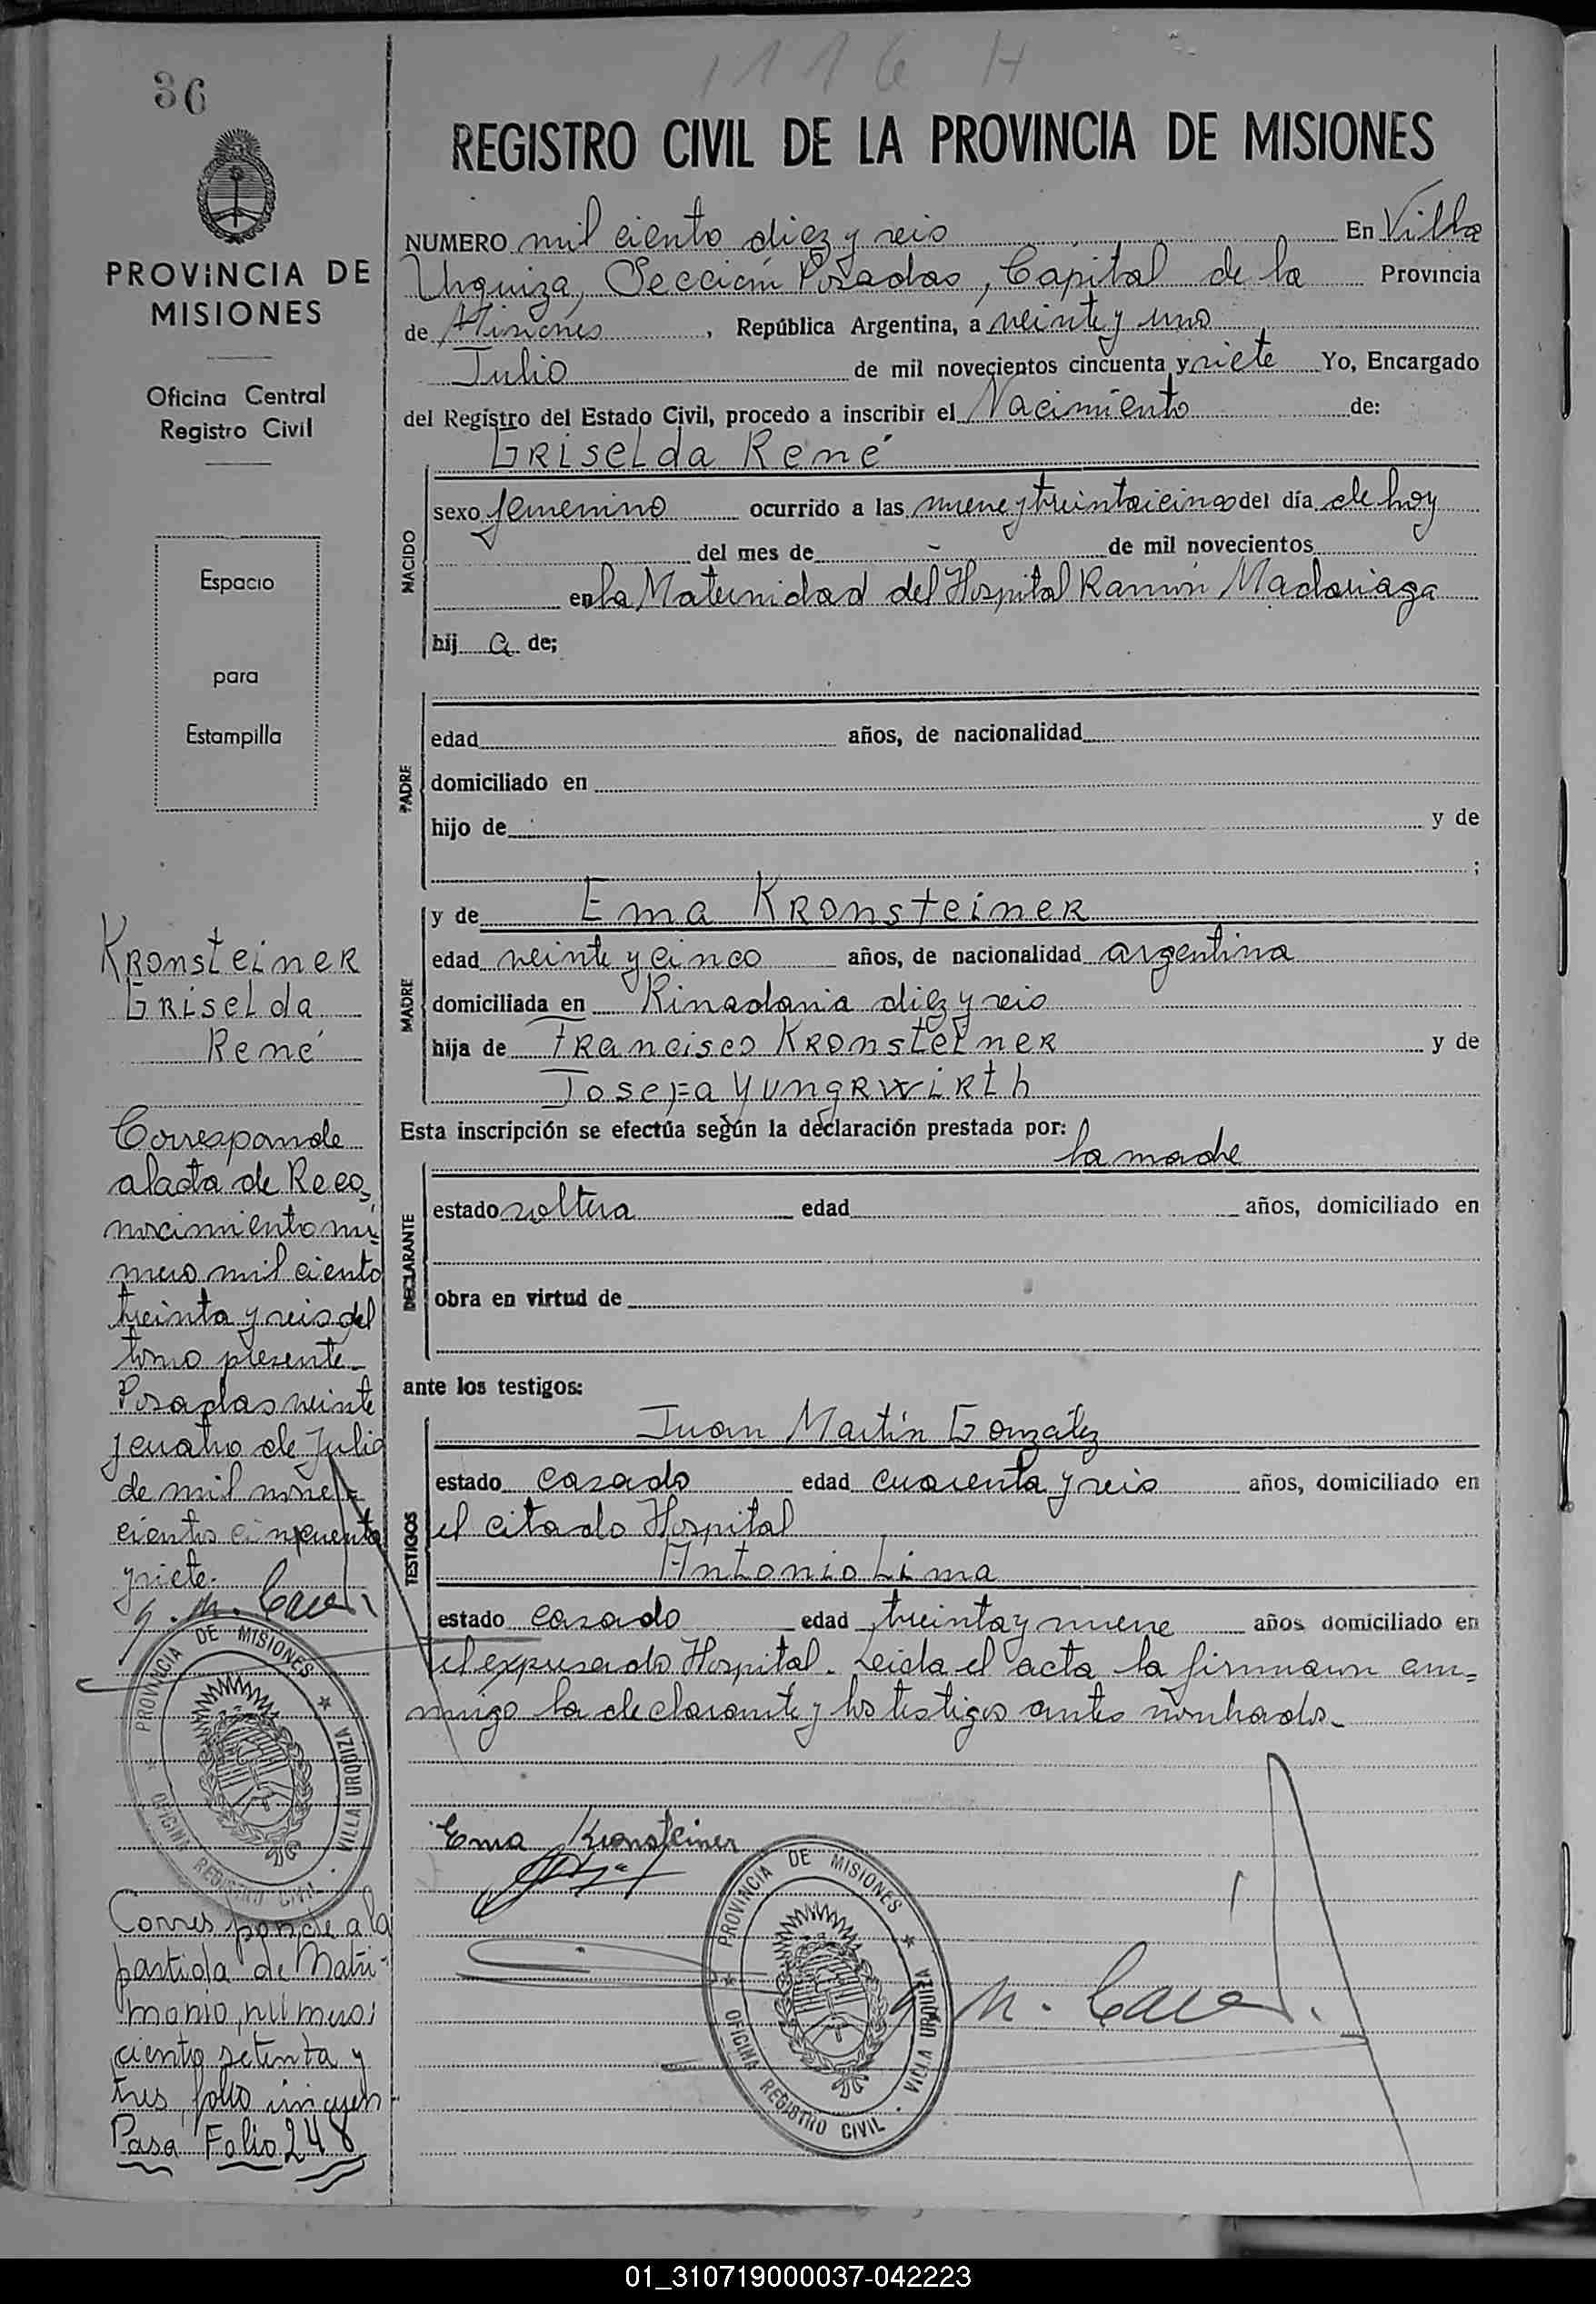 1116 H
36
REGISTRO CIVIL DE LA PROVINCIA DE MISIONES
PROVINCIA DE
MISIONES
Oficina Central
Registro Civil
Espacio
para
Estampilla
Kronsteiner
Griselda
René
Corresponde
al acta de Reco-
nocimiento nú-
mero mil ciento
treinta y seis del
tomo presente.
Posadas veinte
y cuatro de Julio
de mil nove-
cientos cincuenta
y siete.
PROVINCIA DE MISIONES
OFICINA REGISTRO CIVIL
VILLA URQUIZA
Corresponde a la
partida de Matri-
monio, número:
ciento setenta y
tres, folio
Pasa Folio 248
NUMERO mil ciento diez y seis En Villa
Urquiza, Sección Posadas, Capital de la Provincia
de Misiones, República Argentina, a veinte y uno
Julio de mil novecientos cincuenta y siete Yo, Encargado
del Registro del Estado Civil, procedo a inscribir el Nacimiento de:
Griselda René
NACIDO
sexo femenino ocurrido a las nueve y treintaicinco del día de hoy
del mes de - de mil novecientos
en la Maternidad del Hospital Ramón Madariaga
hij a de;
PADRE
edad años, de nacionalidad
domiciliado en
hijo de y de
;
MADRE
y de Ema Kronsteiner
edad veinte y cinco años, de nacionalidad argentina
domiciliada en Rivadavia diez y seis
hija de Francisco Kronsteiner y de
Josefa Yungrwirth
Esta inscripción se efectúa según la declaración prestada por:
la madre
DECLARANTE
estado soltera edad años, domiciliado en
obra en virtud de
ante los testigos:
TESTIGOS
Juan Martín González
estado casado edad cuarenta y seis años, domiciliado en
el citado Hospital
Antonio Lima
estado casado edad treinta y nueve años domiciliado en
el expresado Hospital. Leida el acta la firmaron con-
migo la declarante y los testigos antes nombrados.
Ema Kronsteiner
PROVINCIA DE MISIONES
OFICINA REGISTRO CIVIL
VILLA URQUIZA
01_310719000037-042223